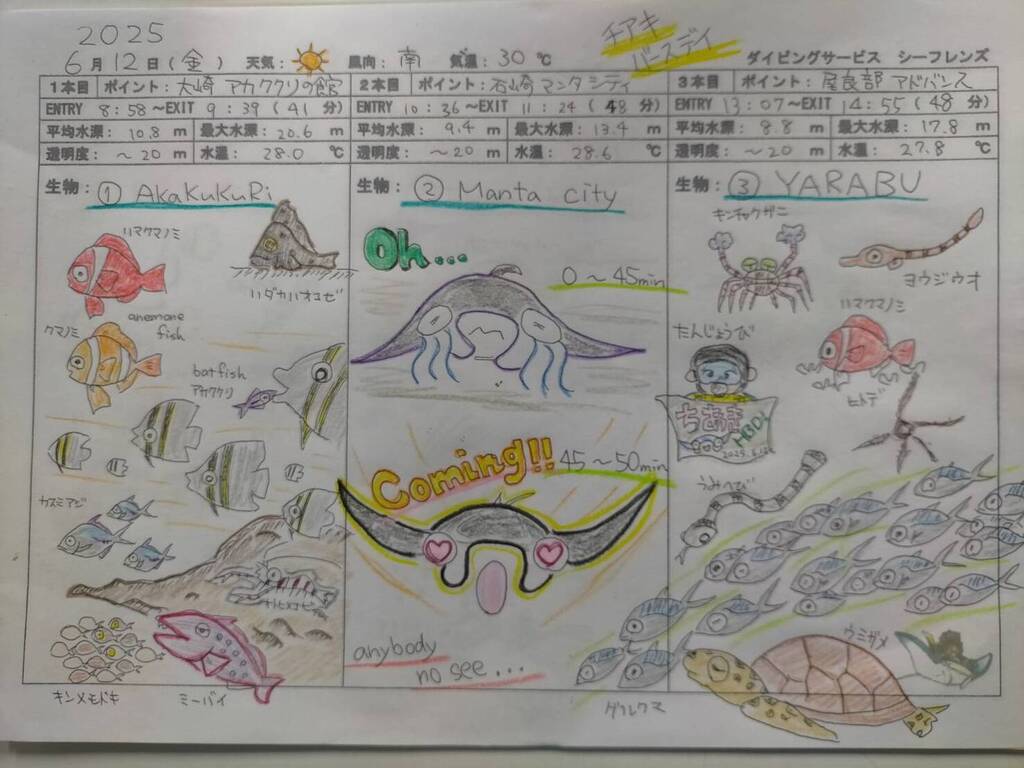 2025
チアキ
バースデイ
6月12日(金) 天気: 風向: 南 気温: 30℃ ダイビングサービス シーフレンズ
1本目 ポイント: 大崎 アカククリの館
ENTRY 8:58~EXIT 9:39 (41分)
平均水深: 10.8 m 最大水深: 20.6 m
透明度: ~20 m 水温: 28.0 ℃
生物: ① AKaKuKuRi
ハダカハオコゼ
ハマクマノミ
クマノミ
anemone
fish
batfish
アカククリ
カスミアジ
キンメモドキ
ミーバイ
2本目 ポイント: 石崎 マンタシティ
ENTRY 10:36~EXIT 11:24 (48分)
平均水深: 9.4 m 最大水深: 13.4 m
透明度: ~20 m 水温: 28.6 ℃
生物: ② Manta city
Oh...
0~45min
Coming!!
45~50min
anybody
no see...
3本目 ポイント: 屋良部 アドバンス
ENTRY 13:07~EXIT 14:55 (48分)
平均水深: 8.8 m 最大水深: 17.8 m
透明度: ~20 m 水温: 27.8 ℃
生物: ③ YARABU
キンチャクガニ
ヨウジウオ
ハマクマノミ
たんじょうび
ちあき
HBD!
ヒトデ
うみへび
ウミガメ
グルクマ